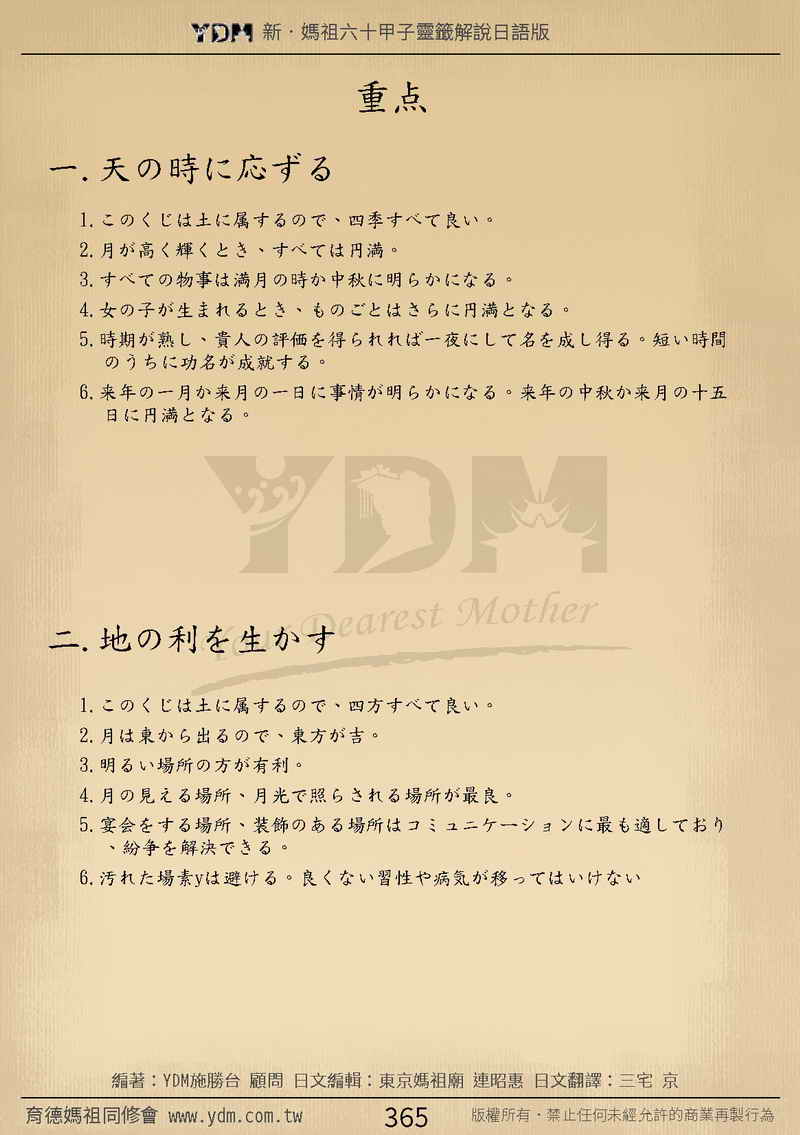 YDM 新．媽祖六十甲子靈籤解說日語版
重点
一. 天の時に応ずる
1. このくじは土に属するので、四季すべて良い。
2. 月が高く輝くとき、すべては円満。
3. すべての物事は満月の時か中秋に明らかになる。
4. 女の子が生まれるとき、ものごとはさらに円満となる。
5. 時期が熟し、貴人の評価を得られれば一夜にして名を成し得る。短い時間
のうちに功名が成就する。
6. 来年の一月か来月の一日に事情が明らかになる。来年の中秋か来月の十五
日に円満となる。
YDM
Your Dearest Mother
二. 地の利を生かす
1. このくじは土に属するので、四方すべて良い。
2. 月は東から出るので、東方が吉。
3. 明るい場所の方が有利。
4. 月の見える場所、月光で照らされる場所が最良。
5. 宴会をする場所、装飾のある場所はコミュニケーションに最も適しており
、紛争を解決できる。
6. 汚れた場素yは避ける。良くない習性や病気が移ってはいけない
編著：YDM施勝台 顧問 日文編輯：東京媽祖廟 連昭惠 日文翻譯：三宅 京
育德媽祖同修會 www.ydm.com.tw 365 版權所有．禁止任何未經允許的商業再製行為